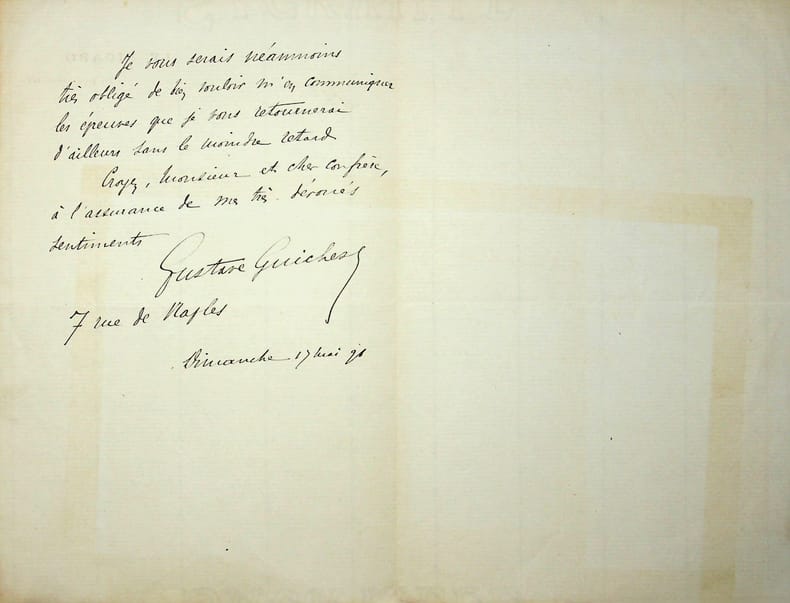 Je vous serais néammoins
très obligé de bien vouloir m'en communiquer
les épreuves que je vous retournerai
d'ailleurs sans le moindre retard
Croyez, Monsieur et cher confrère,
à l'assurance de mes très dévoués
sentiments
Gustave Guiches
7 rue de Naples
Dimanche 17 mai 91